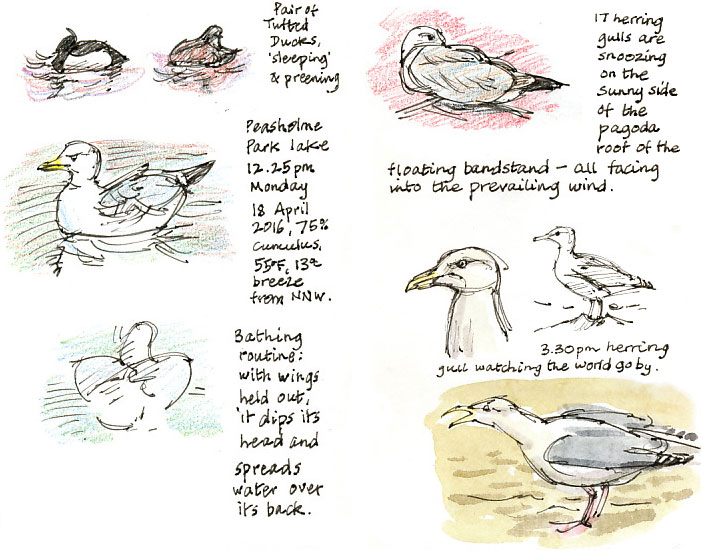 Pair of
Tufted
Ducks,
'sleeping'
& preening
Peasholme
Park lake
12.25pm
Monday
18 April
2016, 75%
cumulus,
55°F, 13°C
breeze
from NNW.
Bathing
routine:
with wings
held out,
it dips its
head and
spreads
water over
its back.
17 herring
gulls are
snoozing
on the
sunny side
of the
pagoda
roof of the
floating bandstand – all facing
into the prevailing wind.
3.30pm herring
gull watching the world go by.